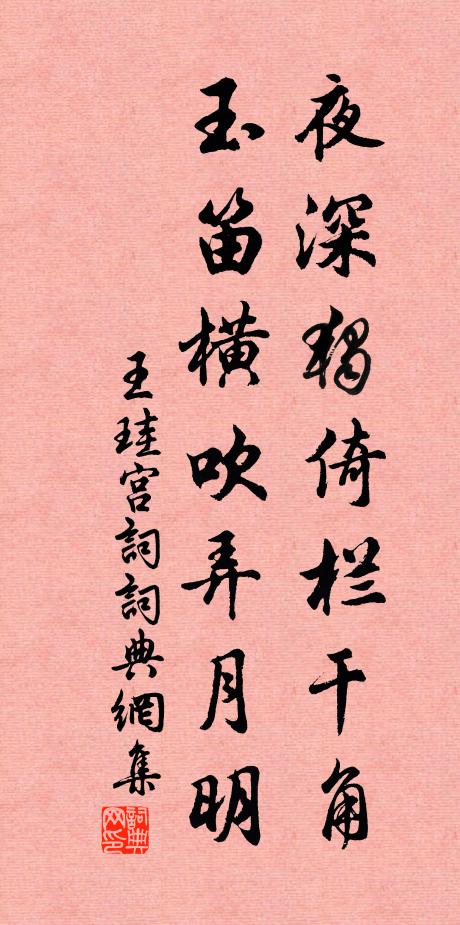 夜深獨倚栏干角
玉笛橫吹弄月明
王珪宫詞詞典網集
詞典
网印